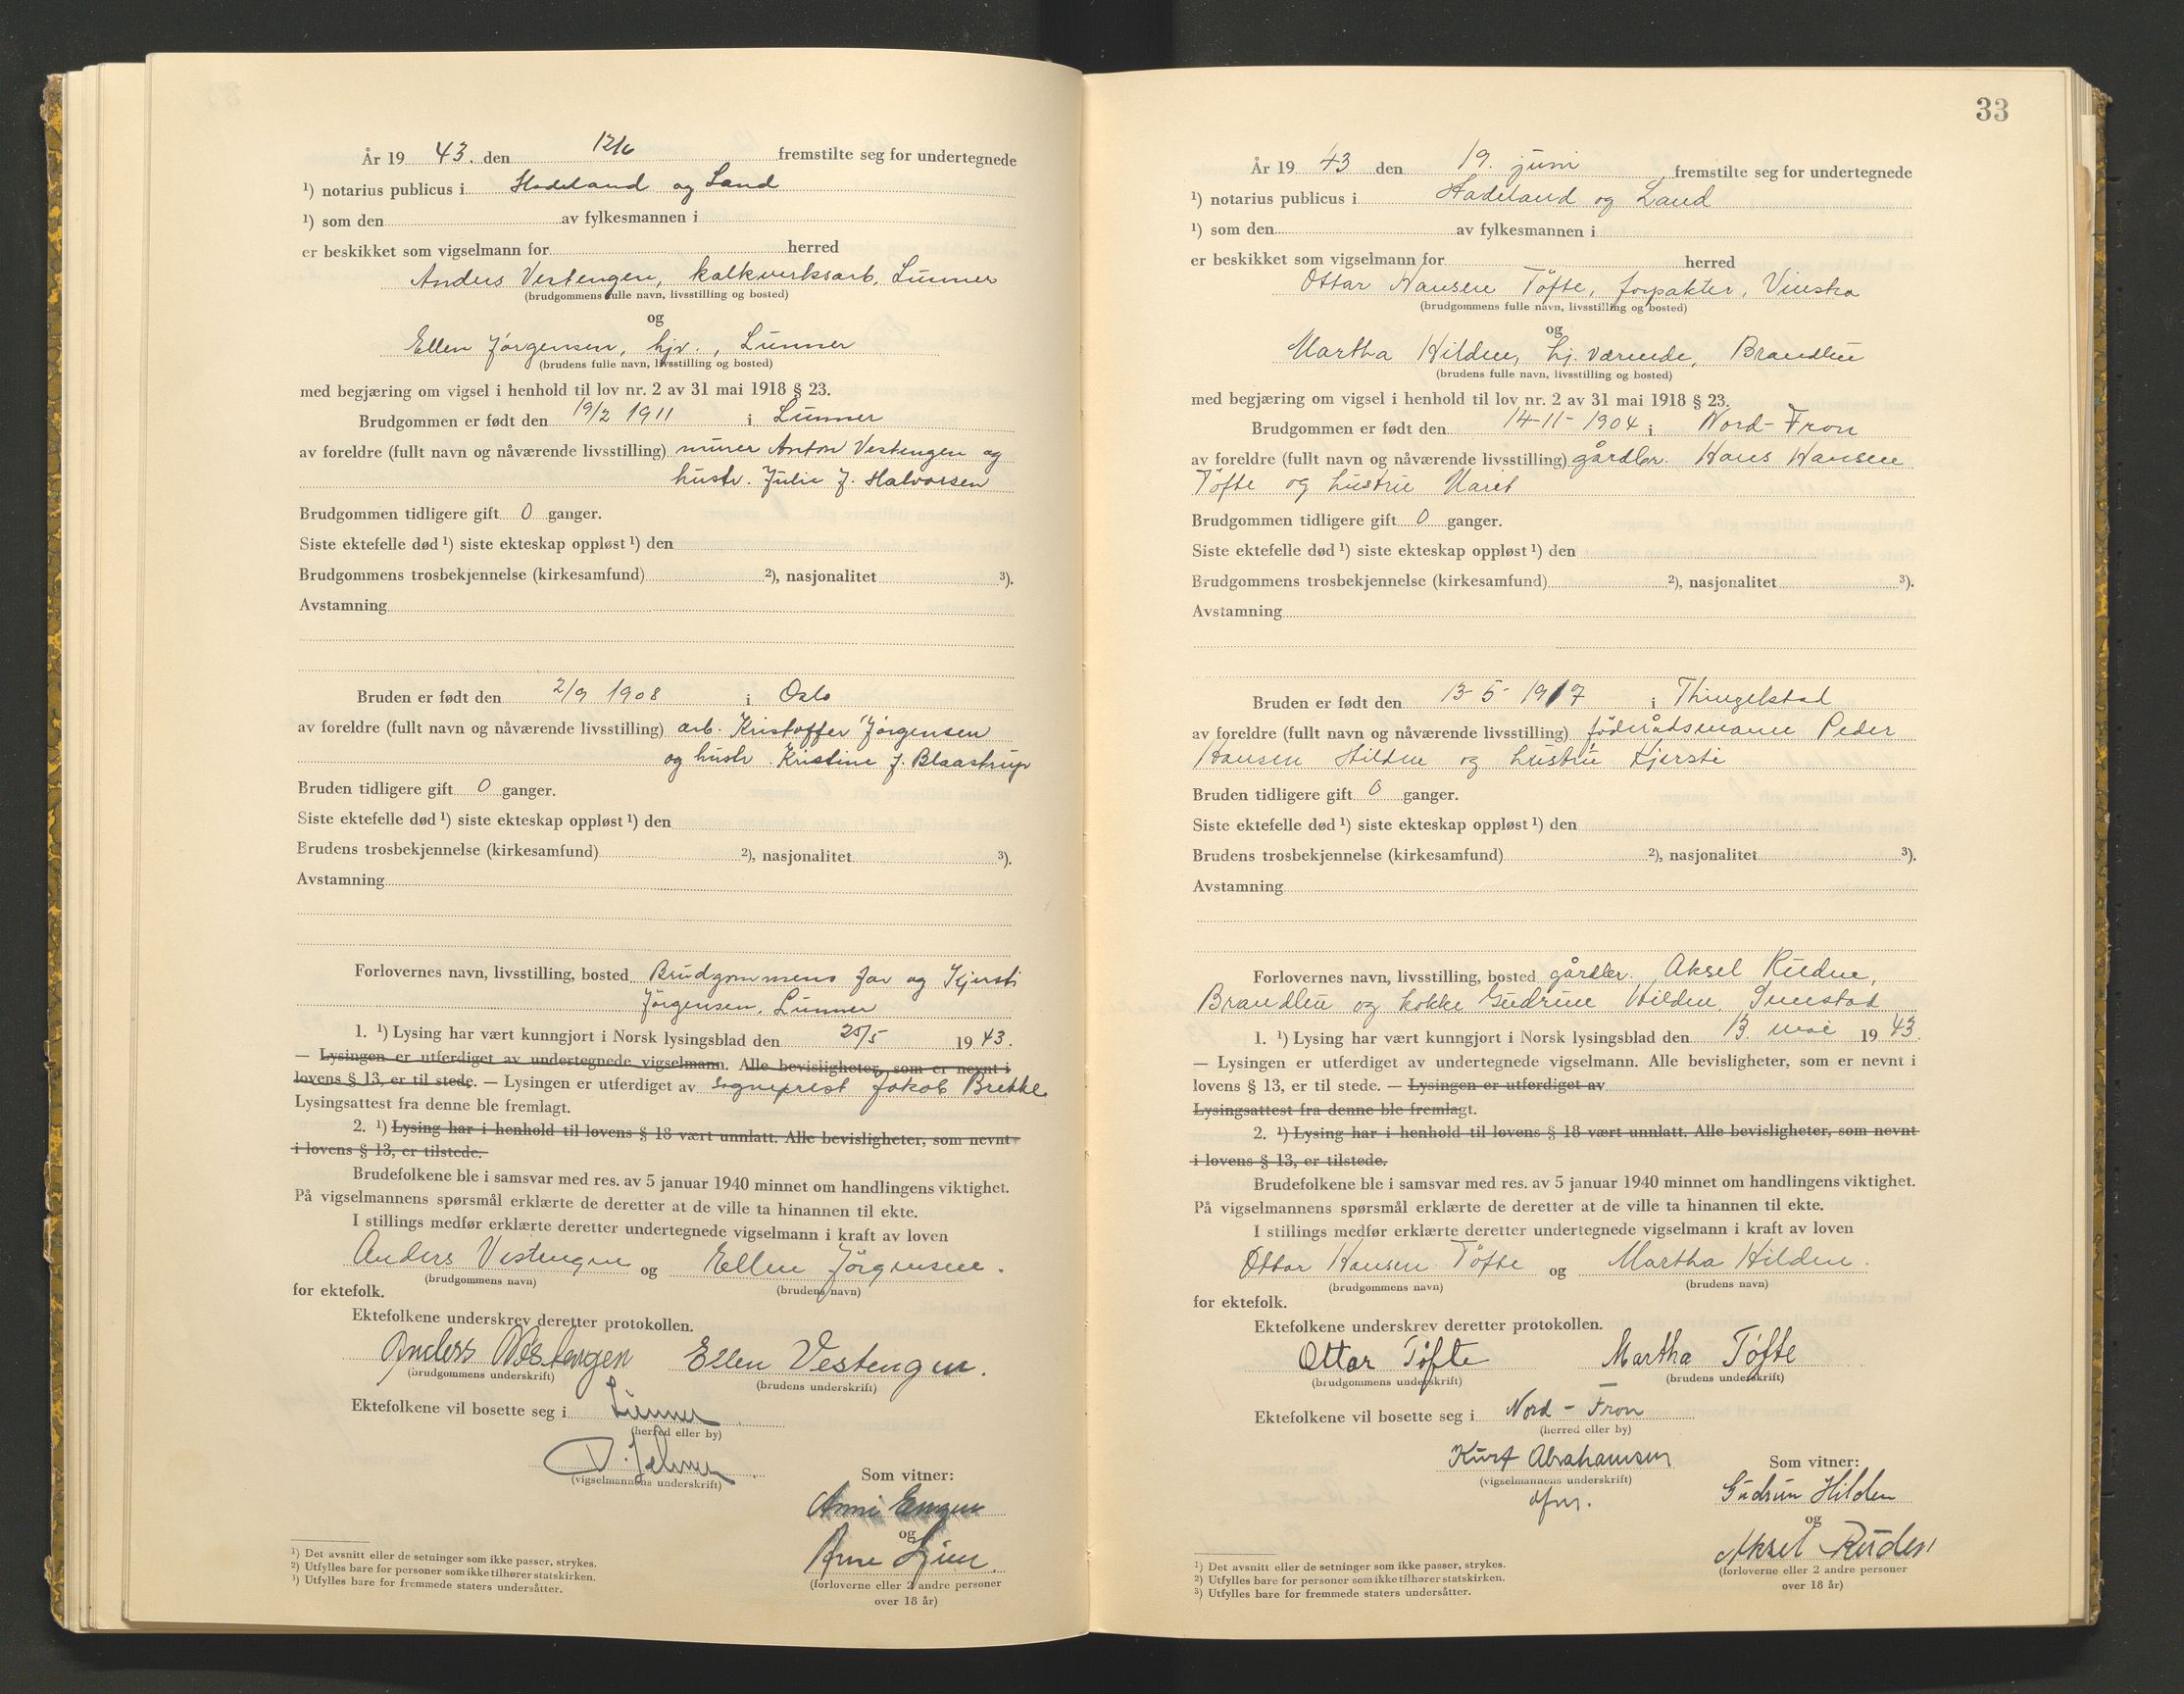 År 19 43. den 12/6 fremstilte seg for undertegnede
¹) notarius publicus i Hadeland og Land
¹) som den av fylkesmannen i
er beskikket som vigselmann for herred
Anders Vestengen, kalkverksarb. Lunner
(brudgommens fulle navn, livsstilling og bosted)
og
Ellen Jørgensen, hjv., Lunner
(brudens fulle navn, livsstilling og bosted)
med begjæring om vigsel i henhold til lov nr. 2 av 31 mai 1918 § 23.
Brudgommen er født den 19/2 1911 i Lunner
av foreldre (fullt navn og nåværende livsstilling) murer Anton Vestengen og
hustr. Julie f. Halvorsen
Brudgommen tidligere gift 0 ganger.
Siste ektefelle død ¹) siste ekteskap oppløst ¹) den
Brudgommens trosbekjennelse (kirkesamfund) ²), nasjonalitet ³).
Avstamning
Bruden er født den 2/9 1908 i Oslo
av foreldre (fullt navn og nåværende livsstilling) arb. Kristoffer Jørgensen
og hustr. Kristine f. Blaastrup
Bruden tidligere gift 0 ganger.
Siste ektefelle død ¹) siste ekteskap oppløst ¹) den
Brudens trosbekjennelse (kirkesamfund) ²), nasjonalitet ³).
Avstamning
Forlovernes navn, livsstilling, bosted Brudgommens far og Kjersti
Jørgensen, Lunner
1. ¹) Lysing har vært kunngjort i Norsk lysingsblad den 25/5 19 43.
— Lysingen er utferdiget av undertegnede vigselmann. Alle bevisligheter, som er nevnt i
lovens § 13, er til stede. — Lysingen er utferdiget av sogneprest Jakob Brekke
Lysingsattest fra denne ble fremlagt.
2. ¹) Lysing har i henhold til lovens § 18 vært unnlatt. Alle bevisligheter, som nevnt
i lovens § 13, er tilstede.
Brudefolkene ble i samsvar med res. av 5 januar 1940 minnet om handlingens viktighet.
På vigselmannens spørsmål erklærte de deretter at de ville ta hinannen til ekte.
I stillings medfør erklærte deretter undertegnede vigselmann i kraft av loven
Anders Vestengen og Ellen Jørgensen.
(brudgommens navn) (brudens navn)
for ektefolk.
Ektefolkene underskrev deretter protokollen.
Anders Vestengen Ellen Vestengen.
(brudgommens underskrift) (brudens underskrift)
Ektefolkene vil bosette seg i Lunner
(herred eller by)
(vigselmannens underskrift)
Som vitner:
Anni Engen
og
Arne
(forloverne eller 2 andre personer
over 18 år)
¹) Det avsnitt eller de setninger som ikke passer, strykes.
²) Utfylles bare for personer som ikke tilhører statskirken.
³) Utfylles bare for fremmede staters undersåtter.
33
År 19 43 den 19. juni fremstilte seg for undertegnede
¹) notarius publicus i Hadeland og Land
¹) som den av fylkesmannen i
er beskikket som vigselmann for herred
Ottar Hansen Tøfte, forpakter, Vinstra
(brudgommens fulle navn, livsstilling og bosted)
og
Martha Hilden, hj. værende, Brandbu
(brudens fulle navn, livsstilling og bosted)
med begjæring om vigsel i henhold til lov nr. 2 av 31 mai 1918 § 23.
Brudgommen er født den 14-11-1904 i Nord-Fron
av foreldre (fullt navn og nåværende livsstilling) gårdbr. Hans Hansen
Tøfte og hustru Marit
Brudgommen tidligere gift 0 ganger.
Siste ektefelle død ¹) siste ekteskap oppløst ¹) den
Brudgommens trosbekjennelse (kirkesamfund) ²), nasjonalitet ³).
Avstamning
Bruden er født den 13-5-1917 i Thingelstad
av foreldre (fullt navn og nåværende livsstilling) føderådsmann Peder
Hansen Hilden og hustru Kjersti
Bruden tidligere gift 0 ganger.
Siste ektefelle død ¹) siste ekteskap oppløst ¹) den
Brudens trosbekjennelse (kirkesamfund) ²), nasjonalitet ³).
Avstamning
Forlovernes navn, livsstilling, bosted gårdbr. Aksel Ruden,
Brandbu og kokke Gudrun Hilden,
1. ¹) Lysing har vært kunngjort i Norsk lysingsblad den 13 mai 19 43.
— Lysingen er utferdiget av undertegnede vigselmann. Alle bevisligheter, som er nevnt i
lovens § 13, er til stede. — Lysingen er utferdiget av
Lysingsattest fra denne ble fremlagt.
2. ¹) Lysing har i henhold til lovens § 18 vært unnlatt. Alle bevisligheter, som nevnt
i lovens § 13, er tilstede.
Brudefolkene ble i samsvar med res. av 5 januar 1940 minnet om handlingens viktighet.
På vigselmannens spørsmål erklærte de deretter at de ville ta hinannen til ekte.
I stillings medfør erklærte deretter undertegnede vigselmann i kraft av loven
Ottar Hansen Tøfte og Martha Hilden.
(brudgommens navn) (brudens navn)
for ektefolk.
Ektefolkene underskrev deretter protokollen.
Ottar Tøfte Martha Tøfte
(brudgommens underskrift) (brudens underskrift)
Ektefolkene vil bosette seg i Nord-Fron
(herred eller by)
Kurt Abrahamsen
(vigselmannens underskrift)
dfm.
Som vitner:
Gudrun Hilden
og
Aksel Ruden
(forloverne eller 2 andre personer
over 18 år)
¹) Det avsnitt eller de setninger som ikke passer, strykes.
²) Utfylles bare for personer som ikke tilhører statskirken.
³) Utfylles bare for fremmede staters undersåtter.